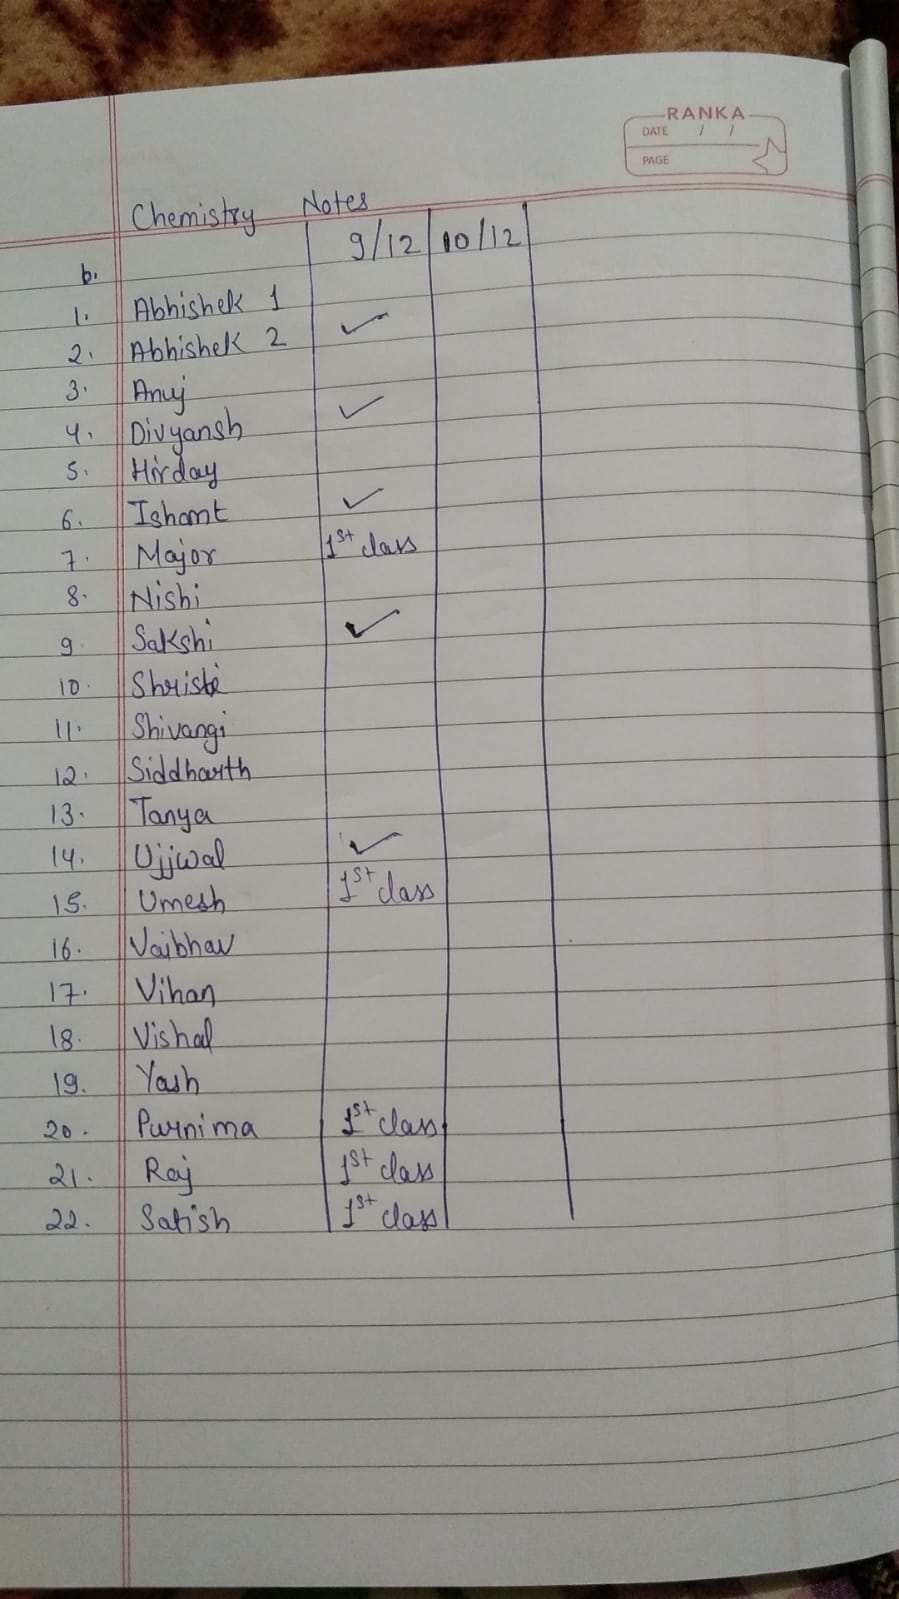 RANKA
DATE / /
PAGE
Chemistry Notes
9/12 10/12
b.
1. Abhishek 1
2. Abhishek 2 ✓
3. Anuj
4. Divyansh ✓
5. Hirday
6. Ishant ✓
7. Major 1st class
8. Nishi
9. Sakshi ✓
10. Shristi
11. Shivangi
12. Siddharth
13. Tanya
14. Ujjwal ✓
15. Umesh 1st class
16. Vaibhav
17. Vihan
18. Vishal
19. Yash
20. Purnima 1st class
21. Raj 1st class
22. Satish 1st class